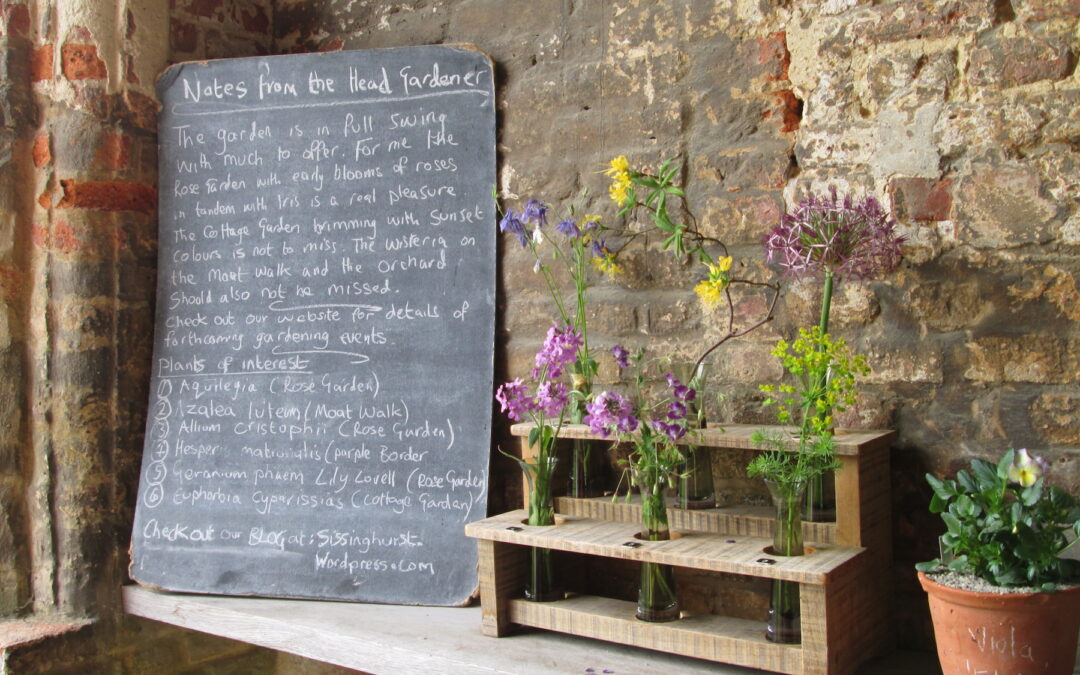 Notes from the Head Gardener
The garden is in full swing
with much to offer. For me the
Rose Garden with early blooms of roses
in tandem with Iris is a real pleasure
The Cottage Garden brimming with Sunset
colours is not to miss. The Wisteria on
the Moat Walk and the Orchard
Should also not be missed.
Check out our website for details of
forthcoming gardening events.
Plants of interest
① Aquilegia (Rose Garden)
② Azalea luteum (Moat Walk)
③ Allium Cristophii (Rose Garden)
④ Hesperis matronalis (purple Border
⑤ Geranium phaem Lily Lovell (Rose Garden
⑥ Euphorbia Cyparissias (Cottage Garden)
Check out our BLOG at: Sissinghurst.
Wordpress.com
Viola